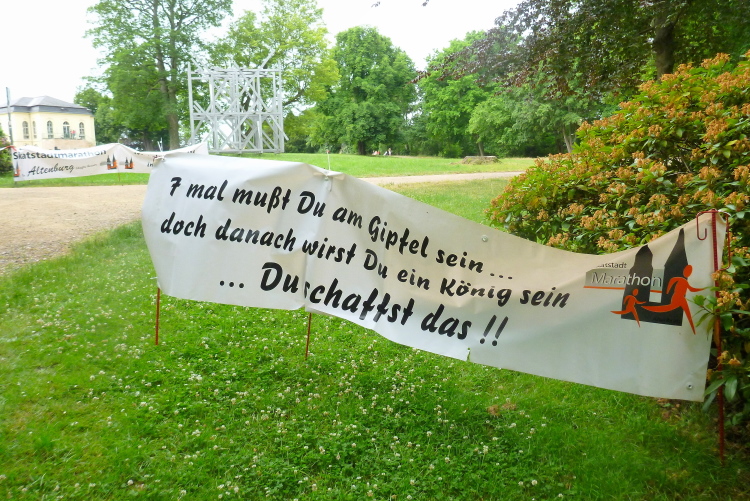 Skatstadtmarathon
Altenburg
7 mal mußt Du am Gipfel sein ...
doch danach wirst Du ein König sein
... Du schaffst das !!
Marathon